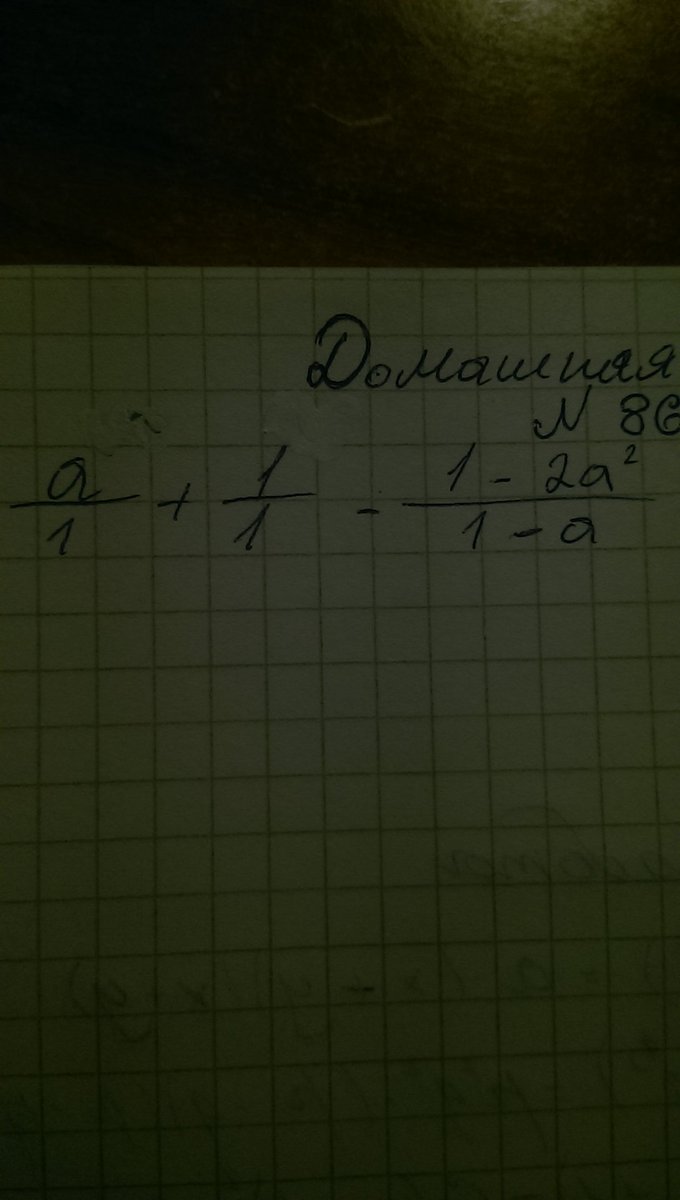 Домашная
N 86
a/1 + 1/1 - (1 - 2a²)/(1 - a)